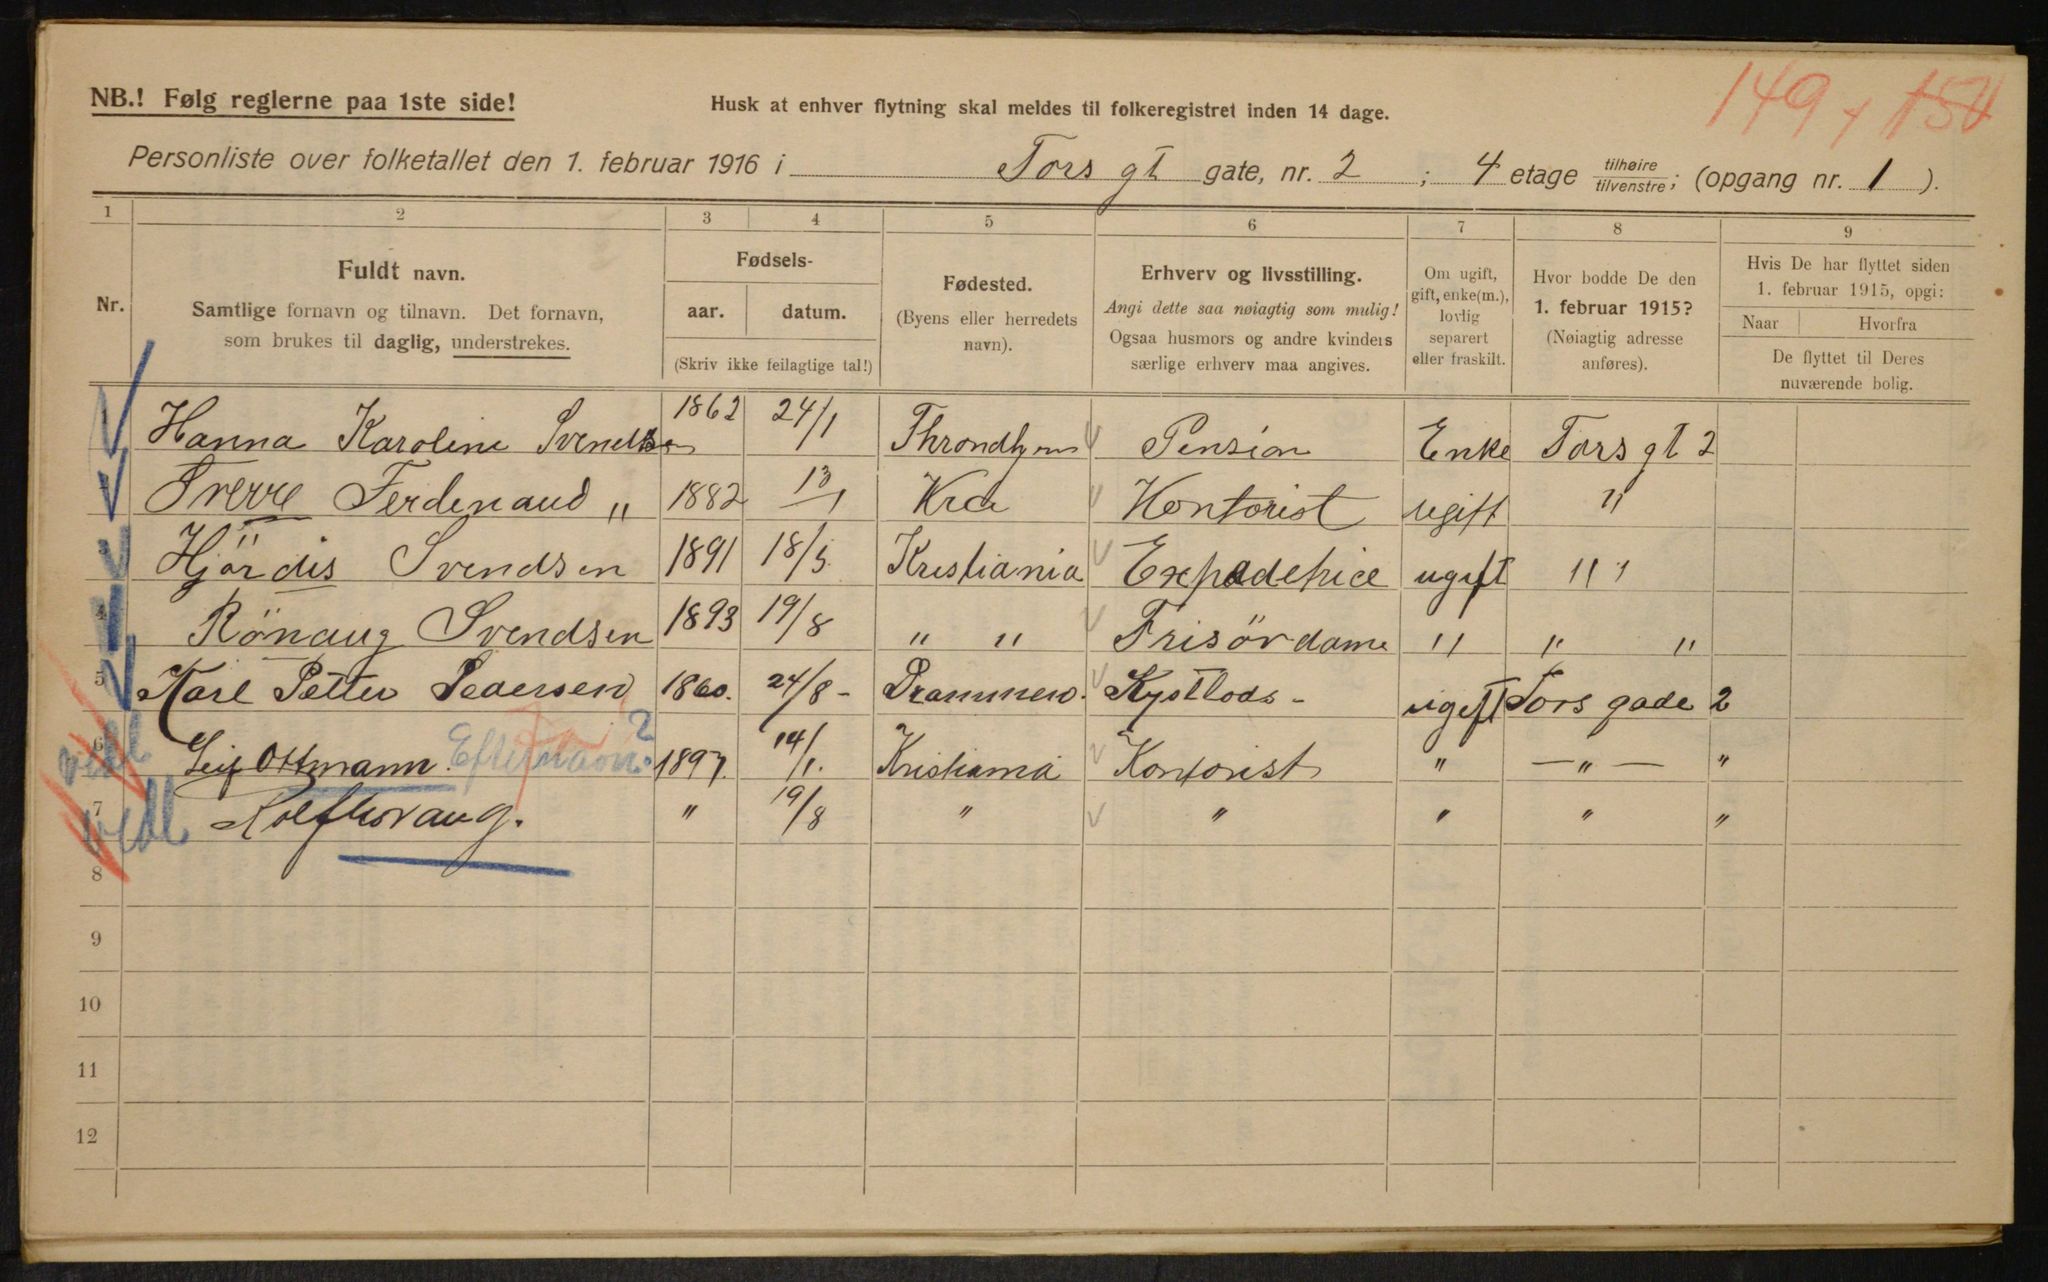 149 + 150
NB.! Følg reglerne paa 1ste side!
Husk at enhver flytning skal meldes til folkeregistret inden 14 dage.
Personliste over folketallet den 1. februar 1916 i Tors gt gate, nr. 2 ; 4 etage tilhøire tilvenstre; (opgang nr. 1 ).
1 2 3 4 5 6 7 8 9
Nr.
Fuldt navn.
Samtlige fornavn og tilnavn. Det fornavn,
som brukes til daglig, understrekes.
Fødsels-
aar. datum.
(Skriv ikke feilagtige tal!)
Fødested.
(Byens eller herredets
navn).
Erhverv og livsstilling.
Angi dette saa nøiagtig som mulig!
Ogsaa husmors og andre kvinders
særlige erhverv maa angives.
Om ugift,
gift, enke(m.),
lovlig
separert
eller fraskilt.
Hvor bodde De den
1. februar 1915?
(Nøiagtig adresse
anføres).
Hvis De har flyttet siden
1. februar 1915, opgi:
Naar Hvorfra
De flyttet til Deres
nuværende bolig.
Hanna Karoline Svendsen 1862 24/1 Throndhjem Pension Enke Tors gt 2
Sverre Ferdenand " 1882 13/1 Kra Kontorist ugift "
Hjördis Svendsen 1891 18/5 Kristiania Expedetrice ugift " "
4 Rönaug Svendsen 1893 19/8 " " Frisördame " " "
5 Karl Petter Pedersen 1860. 24/8 - Drammen. Kystlods - ugift Tors gade 2
6 Leif Ottmann. Efternavn? 1897. 14/1. Kristiania Kontorist " — " — "
7 Rolf Horaug. " 19/8 " " " " "
8
9
10
11
12